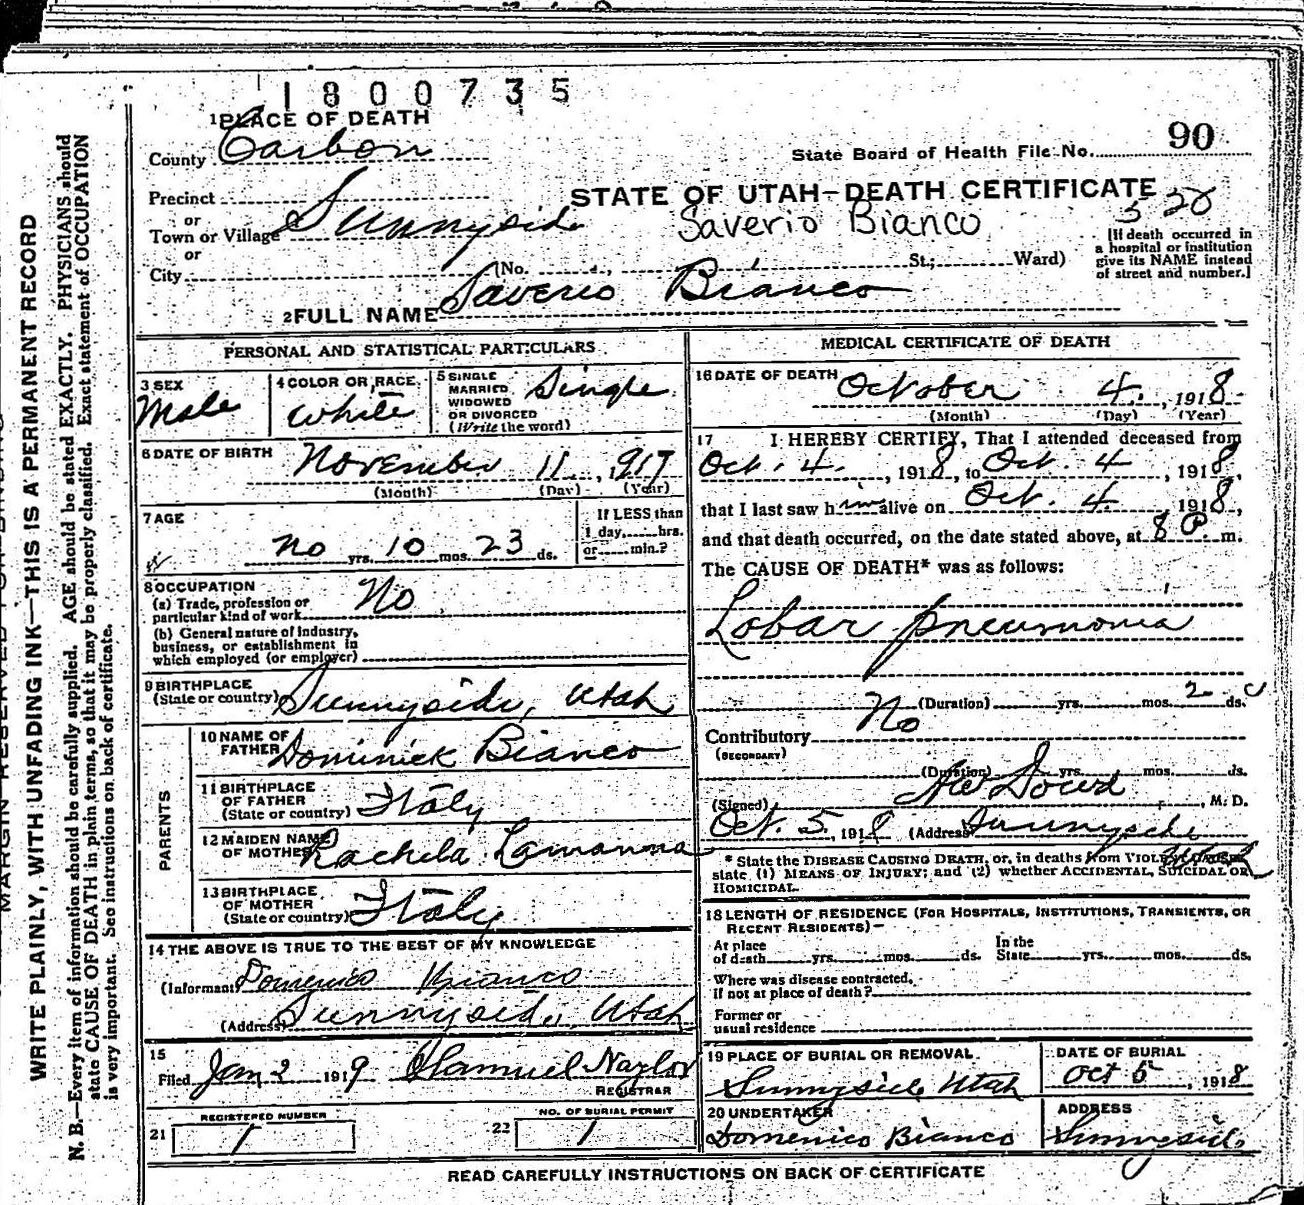 1800735
1 PLACE OF DEATH
County Carbon
State Board of Health File No. 90
Precinct
or
Town or Village Sunnyside
or
City
STATE OF UTAH—DEATH CERTIFICATE
528
Saverio Bianco
[If death occurred in
a hospital or institution
give its NAME instead
of street and number.]
(No. St.; Ward)
2 FULL NAME Saverio Bianco
PERSONAL AND STATISTICAL PARTICULARS
3 SEX
Male
4 COLOR OR RACE
White
5 SINGLE
MARRIED
WIDOWED
OR DIVORCED
(Write the word)
Single
6 DATE OF BIRTH November 11, 1917
(Month) (Day) (Year)
7 AGE
no yrs. 10 mos. 23 ds.
If LESS than
1 day, hrs.
or min.?
8 OCCUPATION
(a) Trade, profession or
particular kind of work No
(b) General nature of industry,
business, or establishment in
which employed (or employer)
9 BIRTHPLACE
(State or country) Sunnyside, Utah
PARENTS
10 NAME OF
FATHER Dominick Bianco
11 BIRTHPLACE
OF FATHER
(State or country) Italy
12 MAIDEN NAME
OF MOTHER Rachela Lamanna
13 BIRTHPLACE
OF MOTHER
(State or country) Italy
14 THE ABOVE IS TRUE TO THE BEST OF MY KNOWLEDGE
(Informant) Domenico Bianco
(Address) Sunnyside, Utah
15
Filed Jan 2 1919 Samuel Naylor
REGISTRAR
REGISTERED NUMBER
21 1
NO. OF BURIAL PERMIT
22 1
MEDICAL CERTIFICATE OF DEATH
16 DATE OF DEATH October 4, 1918
(Month) (Day) (Year)
17 I HEREBY CERTIFY, That I attended deceased from
Oct. 4, 1918, to Oct. 4, 1918,
that I last saw him alive on Oct. 4, 1918,
and that death occurred, on the date stated above, at 8 P. m.
The CAUSE OF DEATH* was as follows:
Lobar pneumonia
(Duration) yrs. mos. 2 ds.
Contributory No
(SECONDARY)
(Duration) yrs. mos. ds.
(Signed) AW Dowd, M. D.
Oct. 5, 1918 (Address) Sunnyside
Utah
* State the DISEASE CAUSING DEATH, or, in deaths from VIOLENT CAUSES,
state (1) MEANS OF INJURY; and (2) whether ACCIDENTAL, SUICIDAL OR
HOMICIDAL.
18 LENGTH OF RESIDENCE (FOR HOSPITALS, INSTITUTIONS, TRANSIENTS, OR
RECENT RESIDENTS)—
At place
of death yrs. mos. ds.
In the
State yrs. mos. ds.
Where was disease contracted,
if not at place of death?
Former or
usual residence
19 PLACE OF BURIAL OR REMOVAL
Sunnyside Utah
DATE OF BURIAL
Oct 5, 1918
20 UNDERTAKER
Domenico Bianco
ADDRESS
Sunnyside
READ CAREFULLY INSTRUCTIONS ON BACK OF CERTIFICATE
WRITE PLAINLY, WITH UNFADING INK—THIS IS A PERMANENT RECORD
N. B.—Every item of information should be carefully supplied. AGE should be stated EXACTLY. PHYSICIANS should
state CAUSE OF DEATH in plain terms, so that it may be properly classified. Exact statement of OCCUPATION
is very important. See instructions on back of certificate.